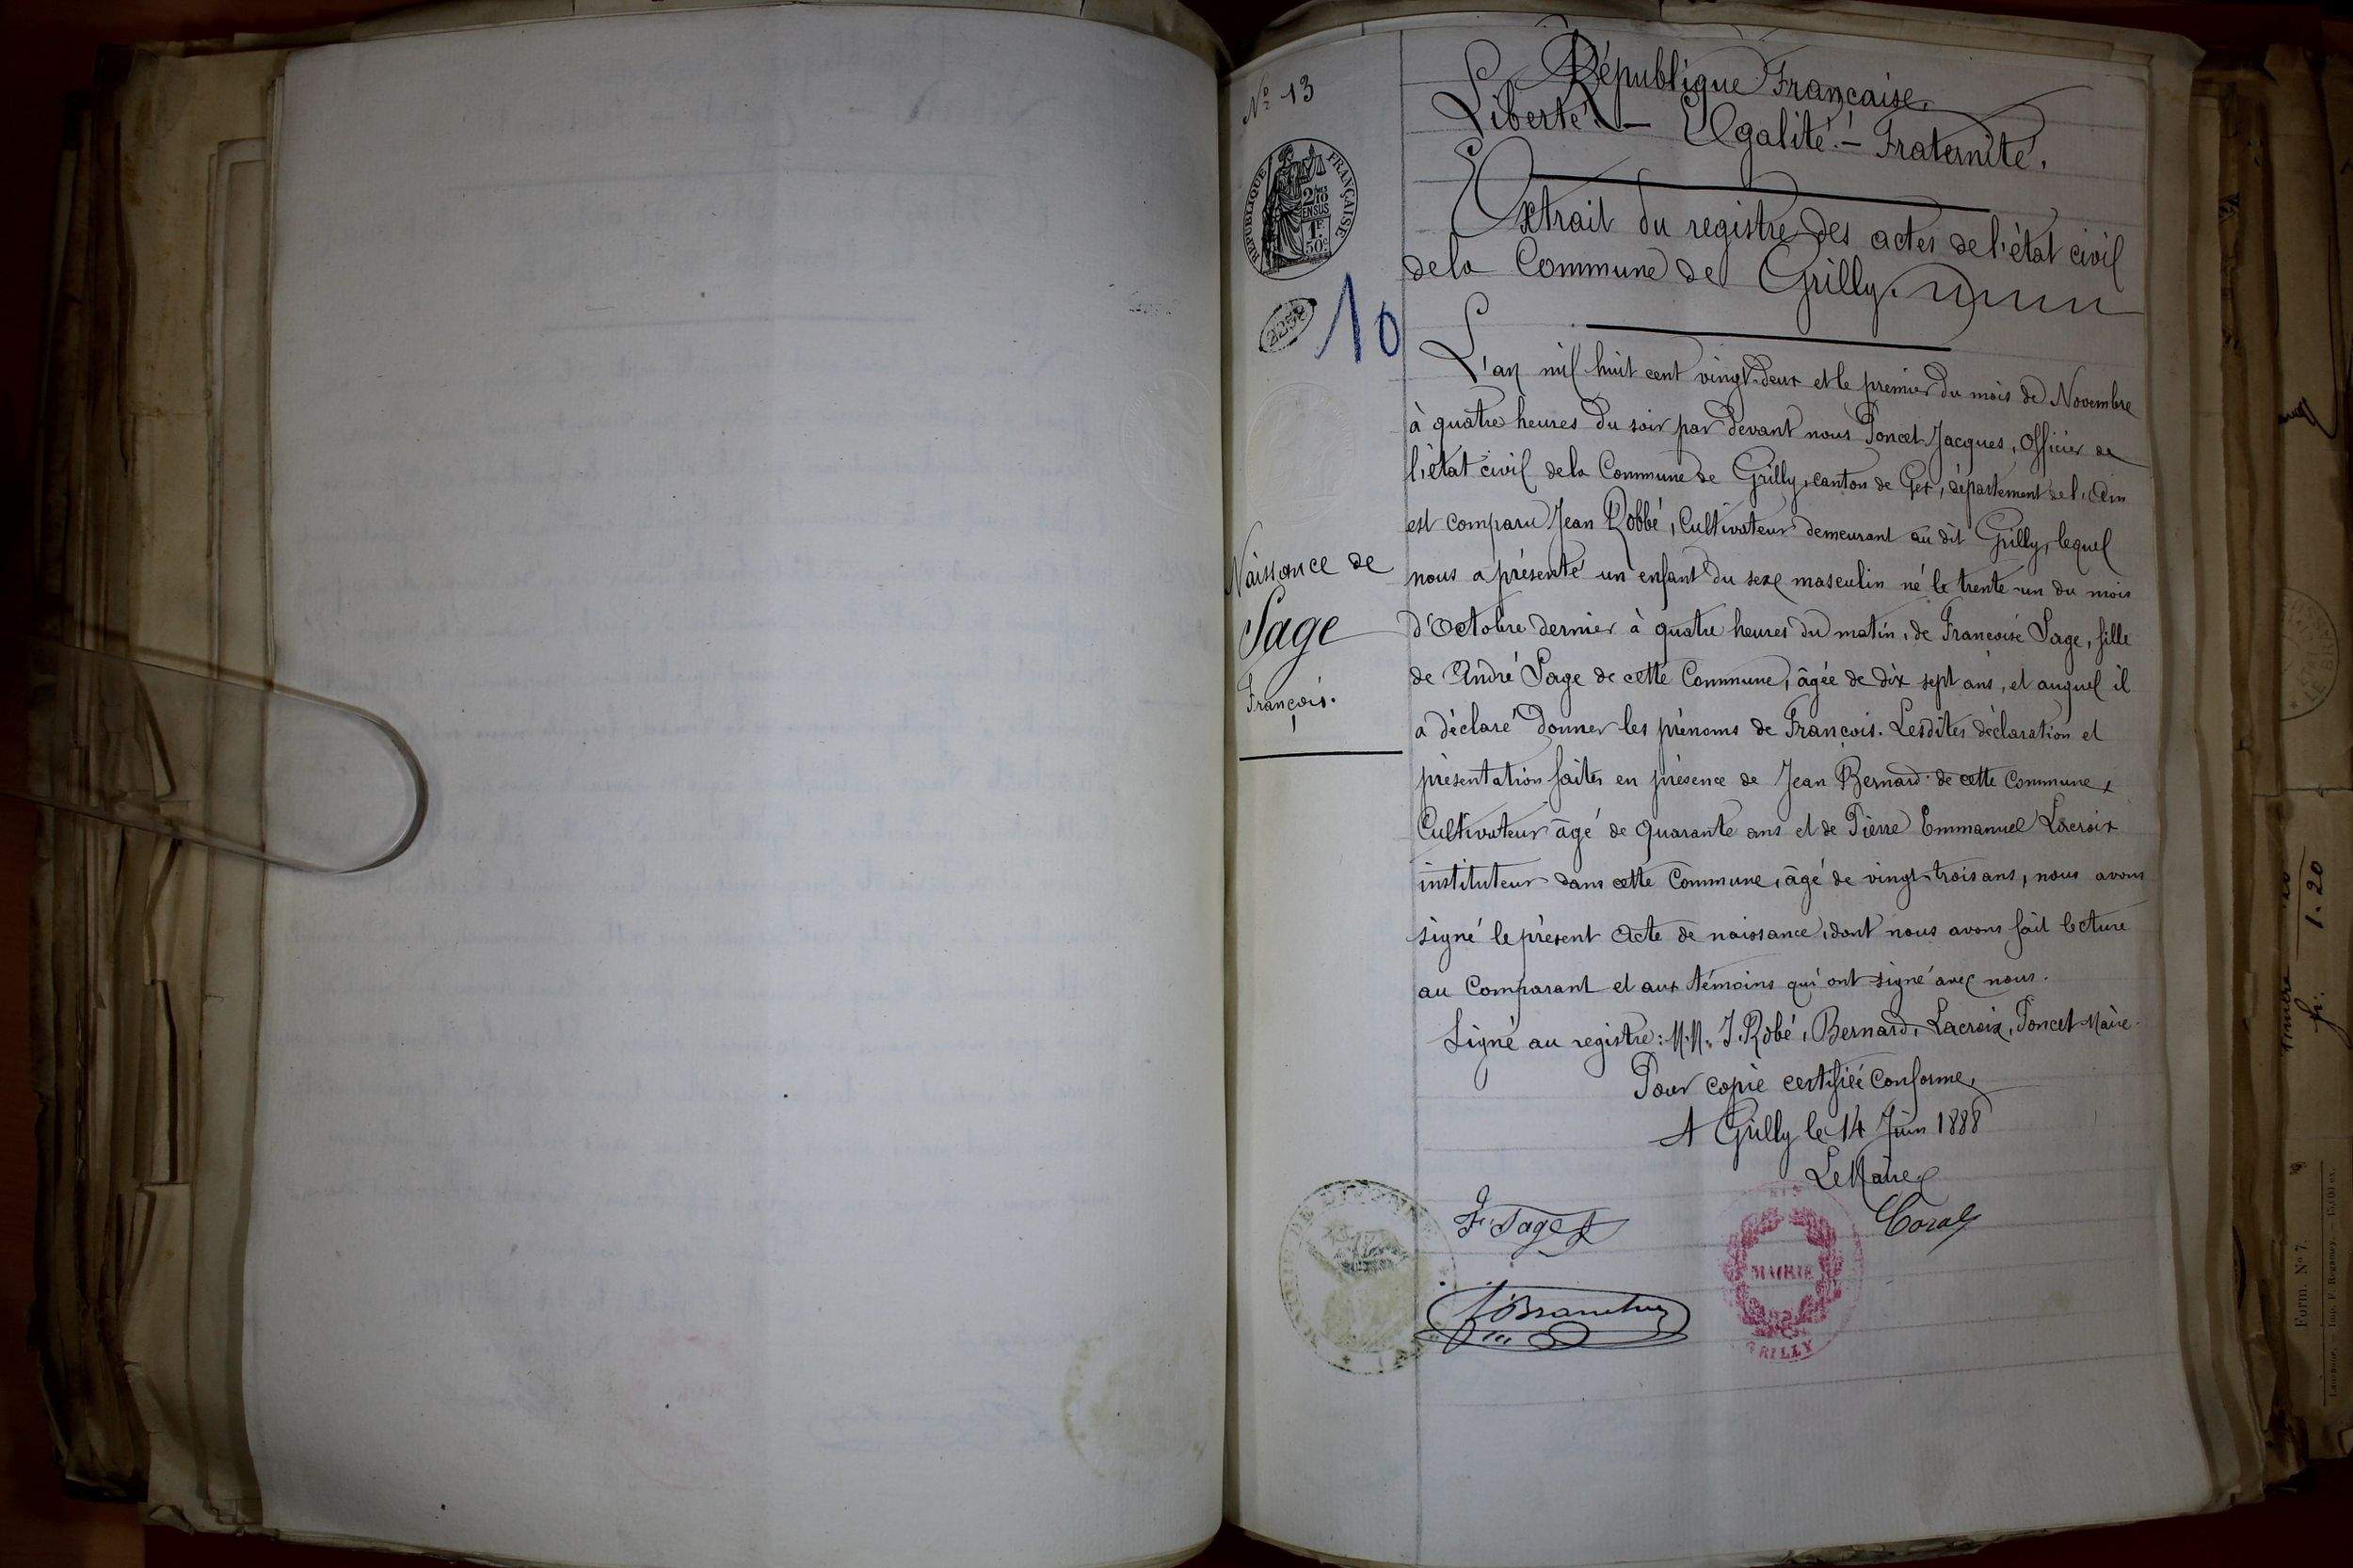 Nº 13
RÉPUBLIQUE FRANÇAISE
2/10
EN SUS
1F
50c
10
Naissance de
Sage
François.
République Française.
Liberté. – Egalité. – Fraternité.
Extrait du registre des actes de l'état civil
de la Commune de Grilly.
L'an mil huit cent vingt-deux et le premier du mois de Novembre
à quatre heures du soir par devant nous Poncet Jacques, Officier de
l'état civil de la Commune de Grilly, canton de Gex, département de l'Ain
est comparu Jean Robbé, Cultivateur demeurant au dit Grilly, lequel
nous a présenté un enfant du sexe masculin né le trente-un du mois
d'Octobre dernier à quatre heures du matin, de Francoise Sage, fille
de André Sage de cette Commune, âgée de dix sept ans, et auquel il
a déclaré donner les prénoms de François. Lesdites déclaration et
présentation faites en présence de Jean Bernard de cette Commune,
Cultivateur âgé de quarante ans et de Pierre Emmanuel Lacroix
instituteur dans cette Commune, âgé de vingt-trois ans, nous avons
signé le présent acte de naissance, dont nous avons fait lecture
au Comparant et aux témoins qui ont signé avec nous.
Signé au registre: M.M. J. Robé, Bernard, Lacroix, Poncet Maire.
Pour copie certifiée conforme,
A Grilly le 14 Juin 1888
Le Maire
F. Sage
MAIRIE
GRILLY
1.20
fr.
Form. Nº 7.